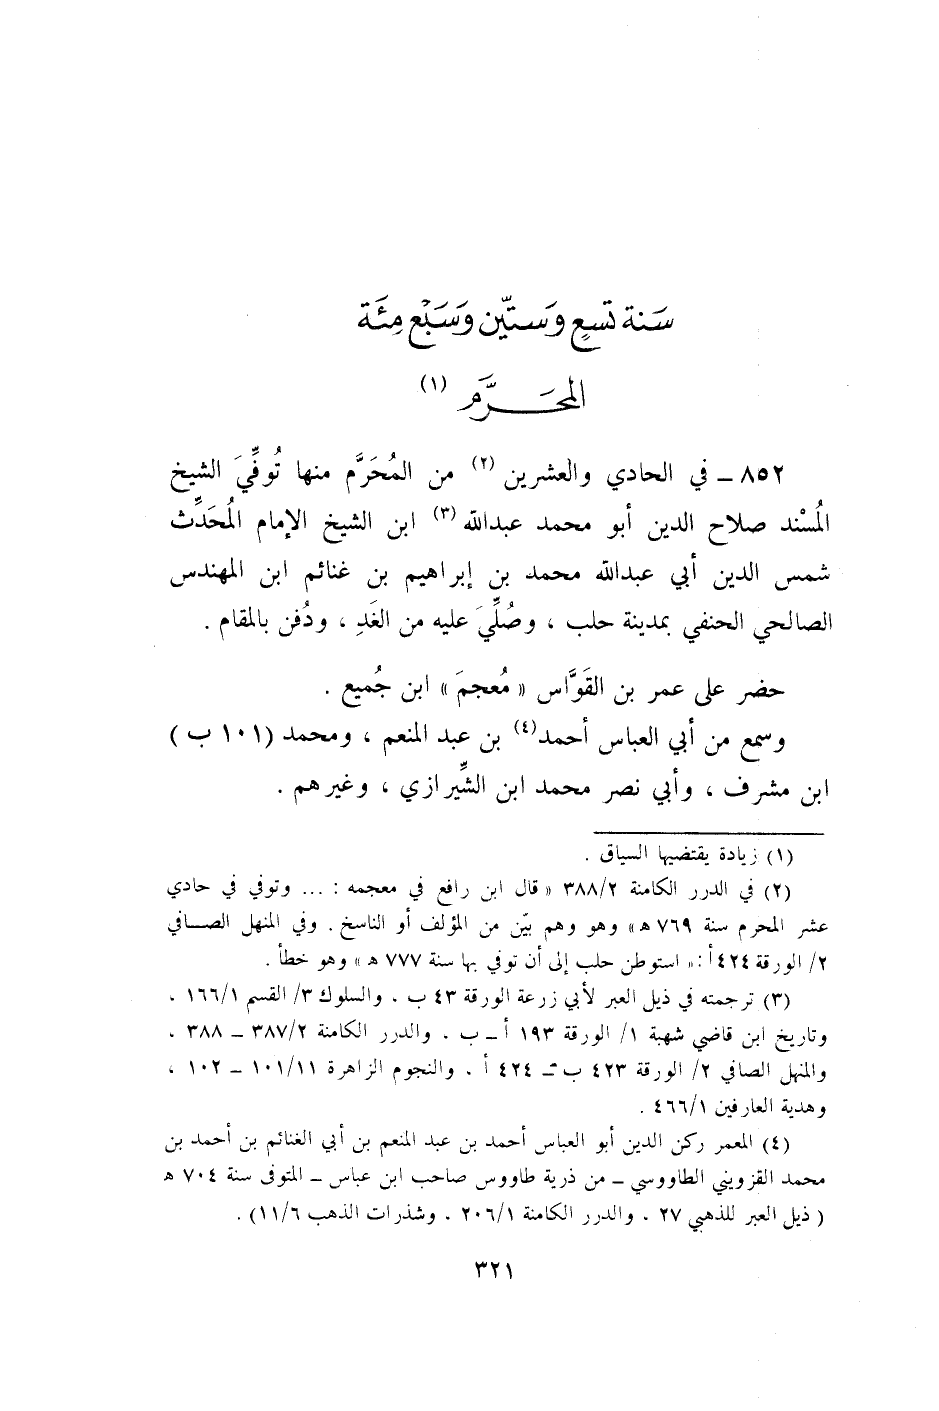 سَنة تسعٍ وَستّين وَسَبْع مِئَة
المحَرَّم (١)
٨٥٢ ــ في الحادي والعشرين (٢) من المُحَرَّم منها تُوفِّيَ الشيخ
المُسْند صلاح الدين أبو محمد عبدالله (٣) ابن الشيخ الإمام المُحَدِّث
شمس الدين أبي عبدالله محمد بن إبراهيم بن غنائم ابن المهندس
الصالحي الحنفي بمدينة حلب ، وصُلِّيَ عليه من الغَدِ ، ودُفن بالمقام .
حضر على عمر بن القَوَّاس « مُعجمَ » ابن جُميع .
وسمع من أبي العباس أحمد(٤) بن عبد المنعم ، ومحمد (١٠١ ب )
ابن مشرف ، وأبي نصر محمد ابن الشِّيرازي ، وغيرهم .
(١) زيادة يقتضيها السياق .
(٢) في الدرر الكامنة ٣٨٨/٢ « قال ابن رافع في معجمه : ... وتوفي في حادي
عشر المحرم سنة ٧٦٩ هـ» وهو وهم بيّن من المؤلف أو الناسخ . وفي المنهل الصافي
٢/ الورقة ٤٢٤ أ : « استوطن حلب إلى أن توفي بها سنة ٧٧٧ هـ » وهو خطأ .
(٣) ترجمته في ذيل العبر لأبي زرعة الورقة ٤٣ ب . والسلوك ٣/ القسم ١٦٦/١ ،
وتاريخ ابن قاضي شهبة ١/ الورقة ١٩٣ أ ــ ب . والدرر الكامنة ٣٨٧/٢ ــ ٣٨٨ .
والمنهل الصافي ٢/ الورقة ٤٢٣ ب ــ ٤٢٤ أ . والنجوم الزاهرة ١٠١/١١ ــ ١٠٢ ،
وهدية العارفين ٤٦٦/١ .
(٤) المعمر ركن الدين أبو العباس أحمد بن عبد المنعم بن أبي الغنائم بن أحمد بن
محمد القزويني الطاووسي ــ من ذرية طاووس صاحب ابن عباس ــ المتوفى سنة ٧٠٤ هـ
( ذيل العبر للذهبي ٢٧ . والدرر الكامنة ٢٠٦/١ . وشذرات الذهب ١١/٦) .
٣٢١